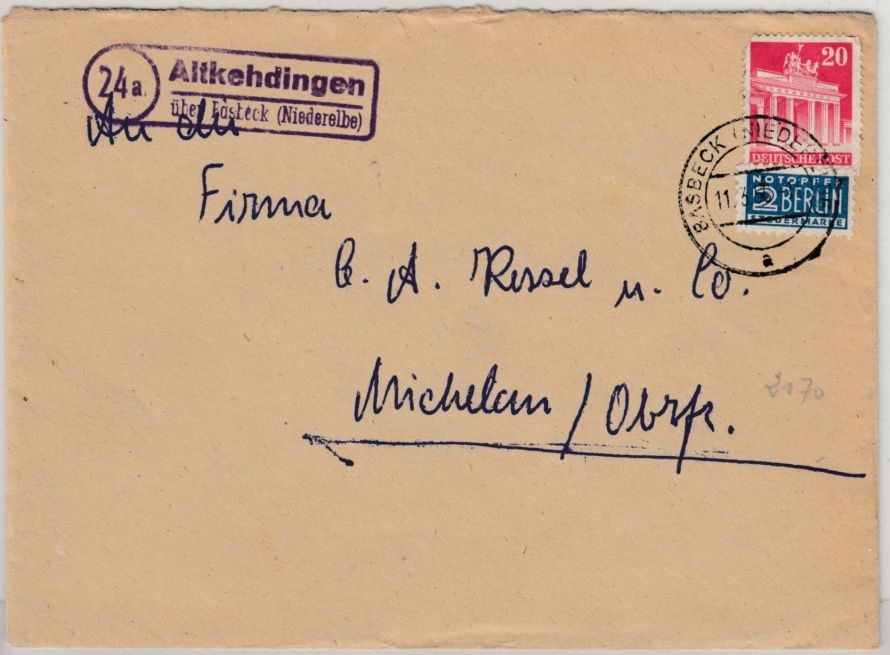 24a
Altkehdingen
über Basbeck (Niederelbe)
20
DEUTSCHE POST
NOTOPFER
2 BERLIN
STEUERMARKE
BASBECK (NIEDERELBE)
11.
a
An die
Firma
C. A. Ressel u. Co.
Michelau / Obfr.
2170